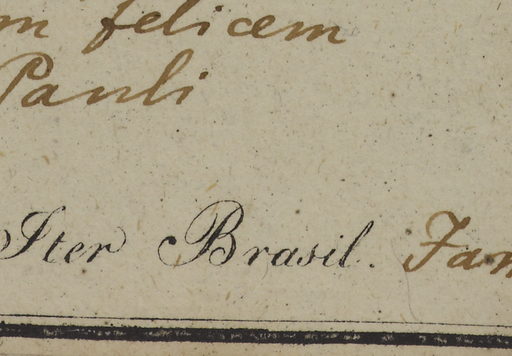 m felicem
Pauli
Iter Brasil. Jan